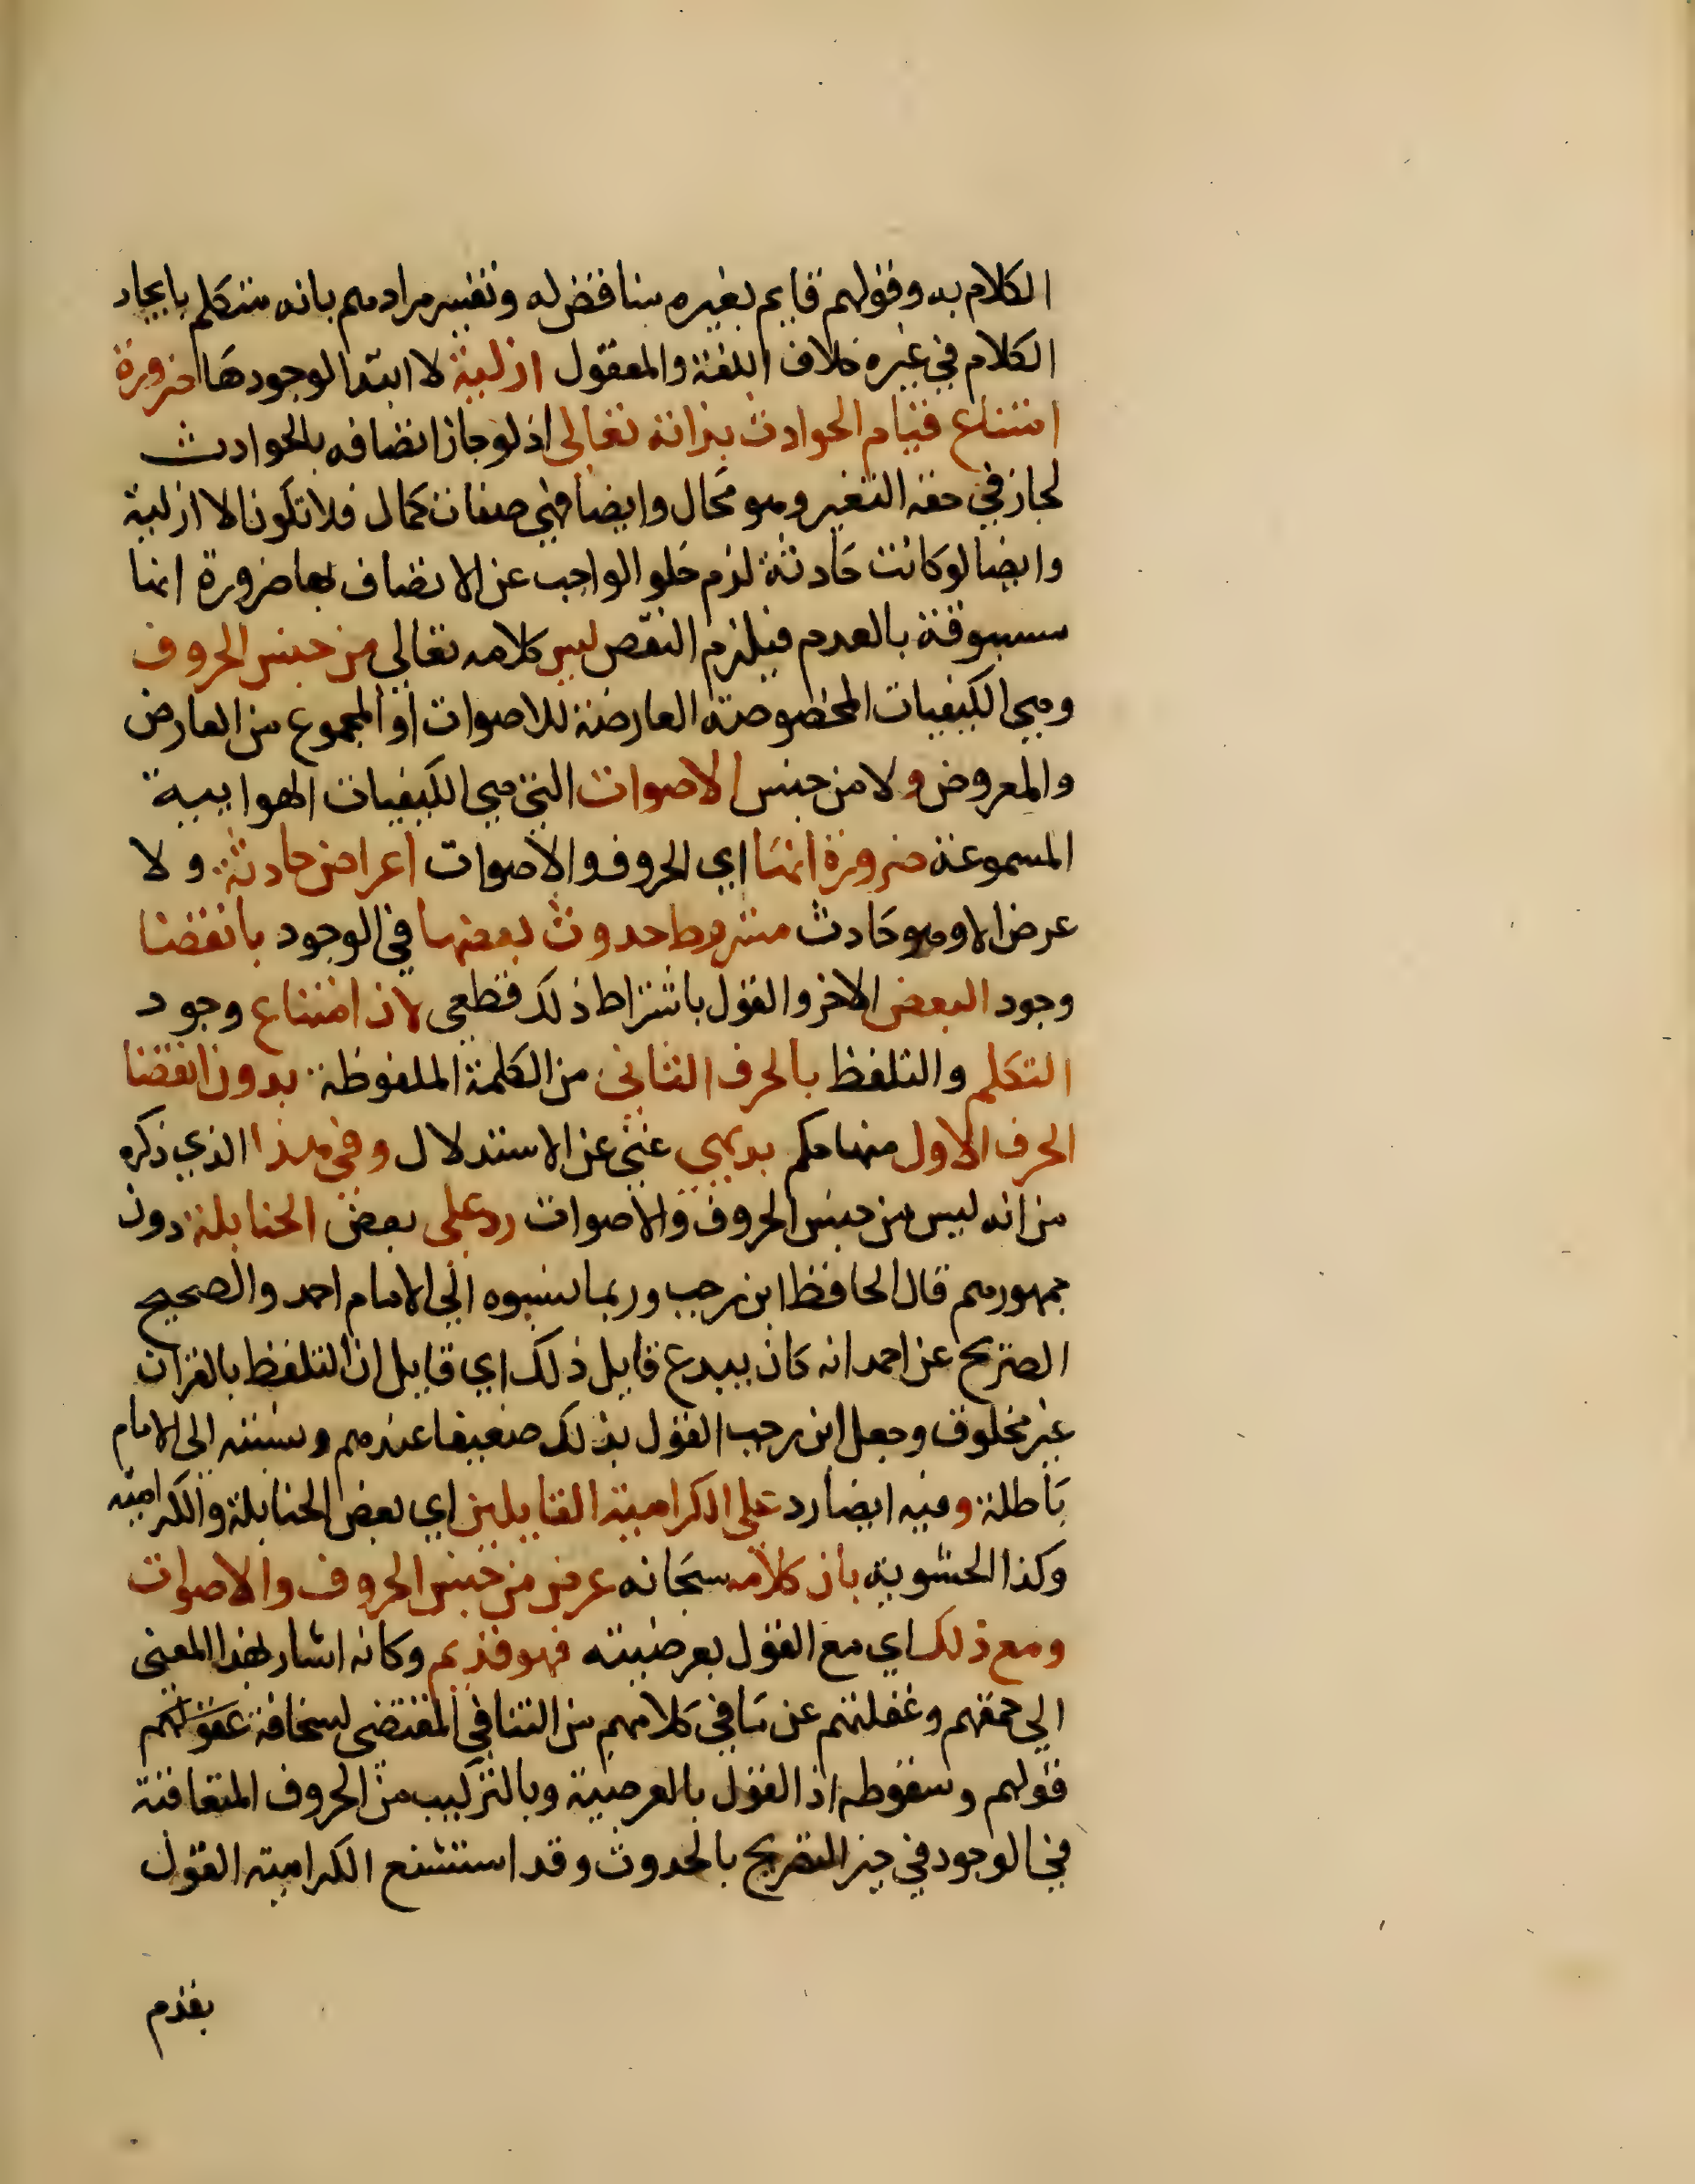 الكلام به وقولهم قايم بغيره مناقض له وتفسير مرادهم بانه متكلم بايجاد
الكلام في غيره خلاف اللغة والمعقول ازلية لا ابتدا لوجودها ضرورة
امتناع قيام الحوادث بذاته تعالى اذ لو جاز اتصافه بالحوادث
لجاز في حقه التغير وهو محال وايضا فهي صفات كمال فلا تكون الا ازلية
وايضا لو كانت حادثة لزم خلو الواجب عن الاتصاف بها ضرورة انها
مسبوقة بالعدم فيلزم النقص ليس كلامه تعالي من جنس الحروف
وهي الكيفيات المخصوصة العارضة للاصوات او المجموع من العارض
والمعروض ولا من جنس الاصوات التي هي الكيفيات الهوايية
المسموعة ضرورة انها اي الحروف والاصوات اعراض حادثة ولا
عرض الا وهو حادث مشروط حدوث بعضها في الوجود بانقضا
وجود البعض الاخر والقول باشتراط ذلك قطعي لان امتناع وجود
التكلم والتلفظ بالحرف الثاني من الكلمة الملفوظة بدون انقضا
الحرف الاول منها حكم بديهي غني عن الاستدلال وفي هذا الذي ذكره
من انه ليس من جنس الحروف والاصوات رد علي بعض الحنابلة دون
جمهورهم قال الحافظ ابن رجب وربما نسبوه الي الامام احمد والصحيح
الصريح عن احمد انه كان يبدع قايل ذلك اي قايل ان التلفظ بالقران
غير مخلوق وجعل ابن رجب القول بذلك ضعيفا عندهم ونسبته الي الامام
باطلة وفيه ايضا رد علي الكرامية القايلين اي بعض الحنابلة والكرامية
وكذا الحشوية بان كلامه سبحانه عرض من جنس الحروف والاصوات
ومع ذلك اي مع القول بعرضيته فهو قديم وكانه اشار لهذا المعنى
الي حمقهم وغفلتهم عن ما في كلامهم من التنافي المقتضى لسخافة عقولهم
قولهم وسقوطه اذ القول بالعرضية وبالتركيب من الحروف المتعاقبة
في الوجود في حيز التصريح بالحدوث وقد استشنع الكرامية القول
بقدم